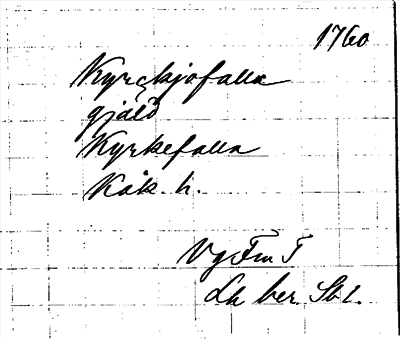 1760
Kyrckjofalla
gjäld
Kyrkefalla
Kåk. h.
Vg Fm T
Lh ber. St 1.